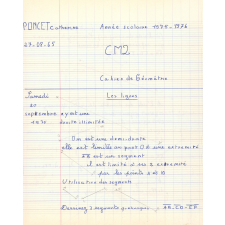 PONCET Catherine Année scolaire 1975-1976
29-08-65
CM2
Cahier de Géométrie
Samedi Les lignes
septembre xy est une
1975 droite illimitée
Ox est une demi-droite
elle est limitée en point O à une extrémité
AB est un segment
il est limité à ses 2 extrémités
par les points A et B
Utilisation des segments
Dessinez 3 segments quelconques : AB - CD - EF